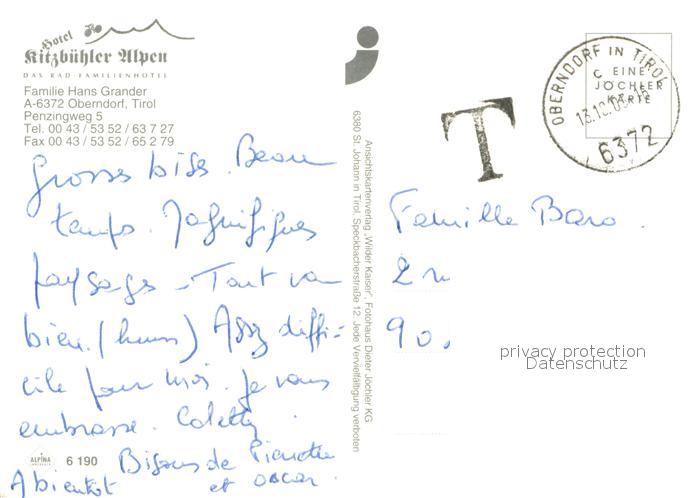 Hotel
Kitzbühler Alpen
DAS RAD-FAMILIENHOTEL
Familie Hans Grander
A-6372 Oberndorf, Tirol
Penzingweg 5
Tel. 00 43 / 53 52 / 63 7 27
Fax 00 43 / 53 52 / 65 2 79
Grosses bises. Beau
temps. Magnifiques
paysages - Tout va
bien. (hum) Assez diffi-
cile pour moi. Je vous
embrasse. Coletty.
Bisous de Pierrette
et oscar.
A bientôt
ALPINA
6 190
Ansichtskartenverlag „Wilder Kaiser", Fotohaus Dieter Jöchler KG
6380 St. Johann in Tirol, Speckbacherstraße 12. Jede Vervielfältigung verboten
T
OBERNDORF IN TIROL
6372
EINE
JÖCHLER
KARTE
Famille Baro.
2 n
90.
privacy protection
Datenschutz